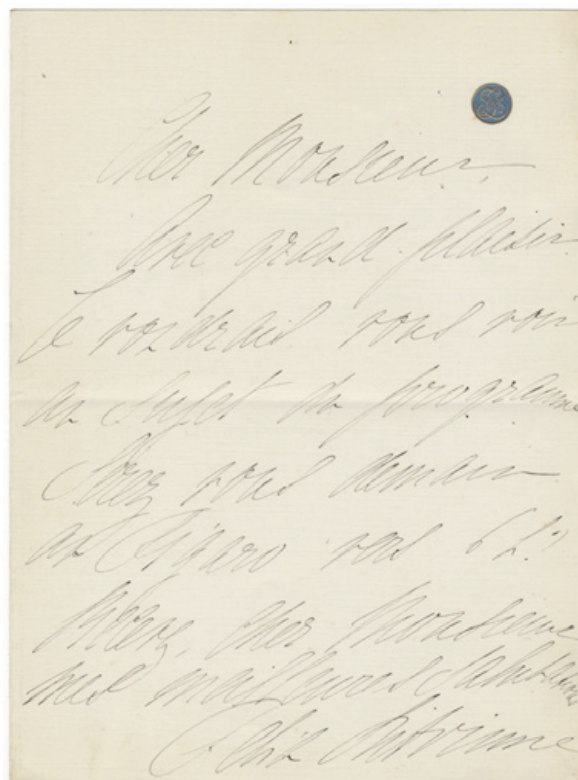 Cher Monsieur,
Avec grand plaisir.
Je voudrais vous voir
au sujet du programme
Serez vous demain
au Figaro vers 6 h.?
Recevez, cher Monsieur
mes meilleures salutations
Félia Litvinne